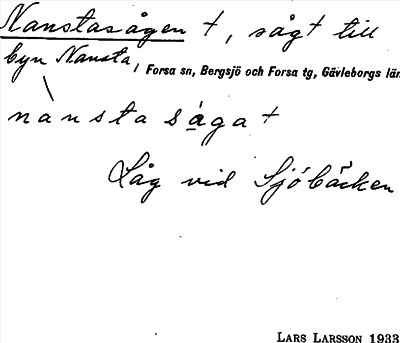 Nanstasågen +, sågt till
byn Nansta, Forsa sn, Bergsjö och Forsa tg, Gävleborgs län
nànsta sàga +
Låg vid Sjöbäcken
LARS LARSSON 1933